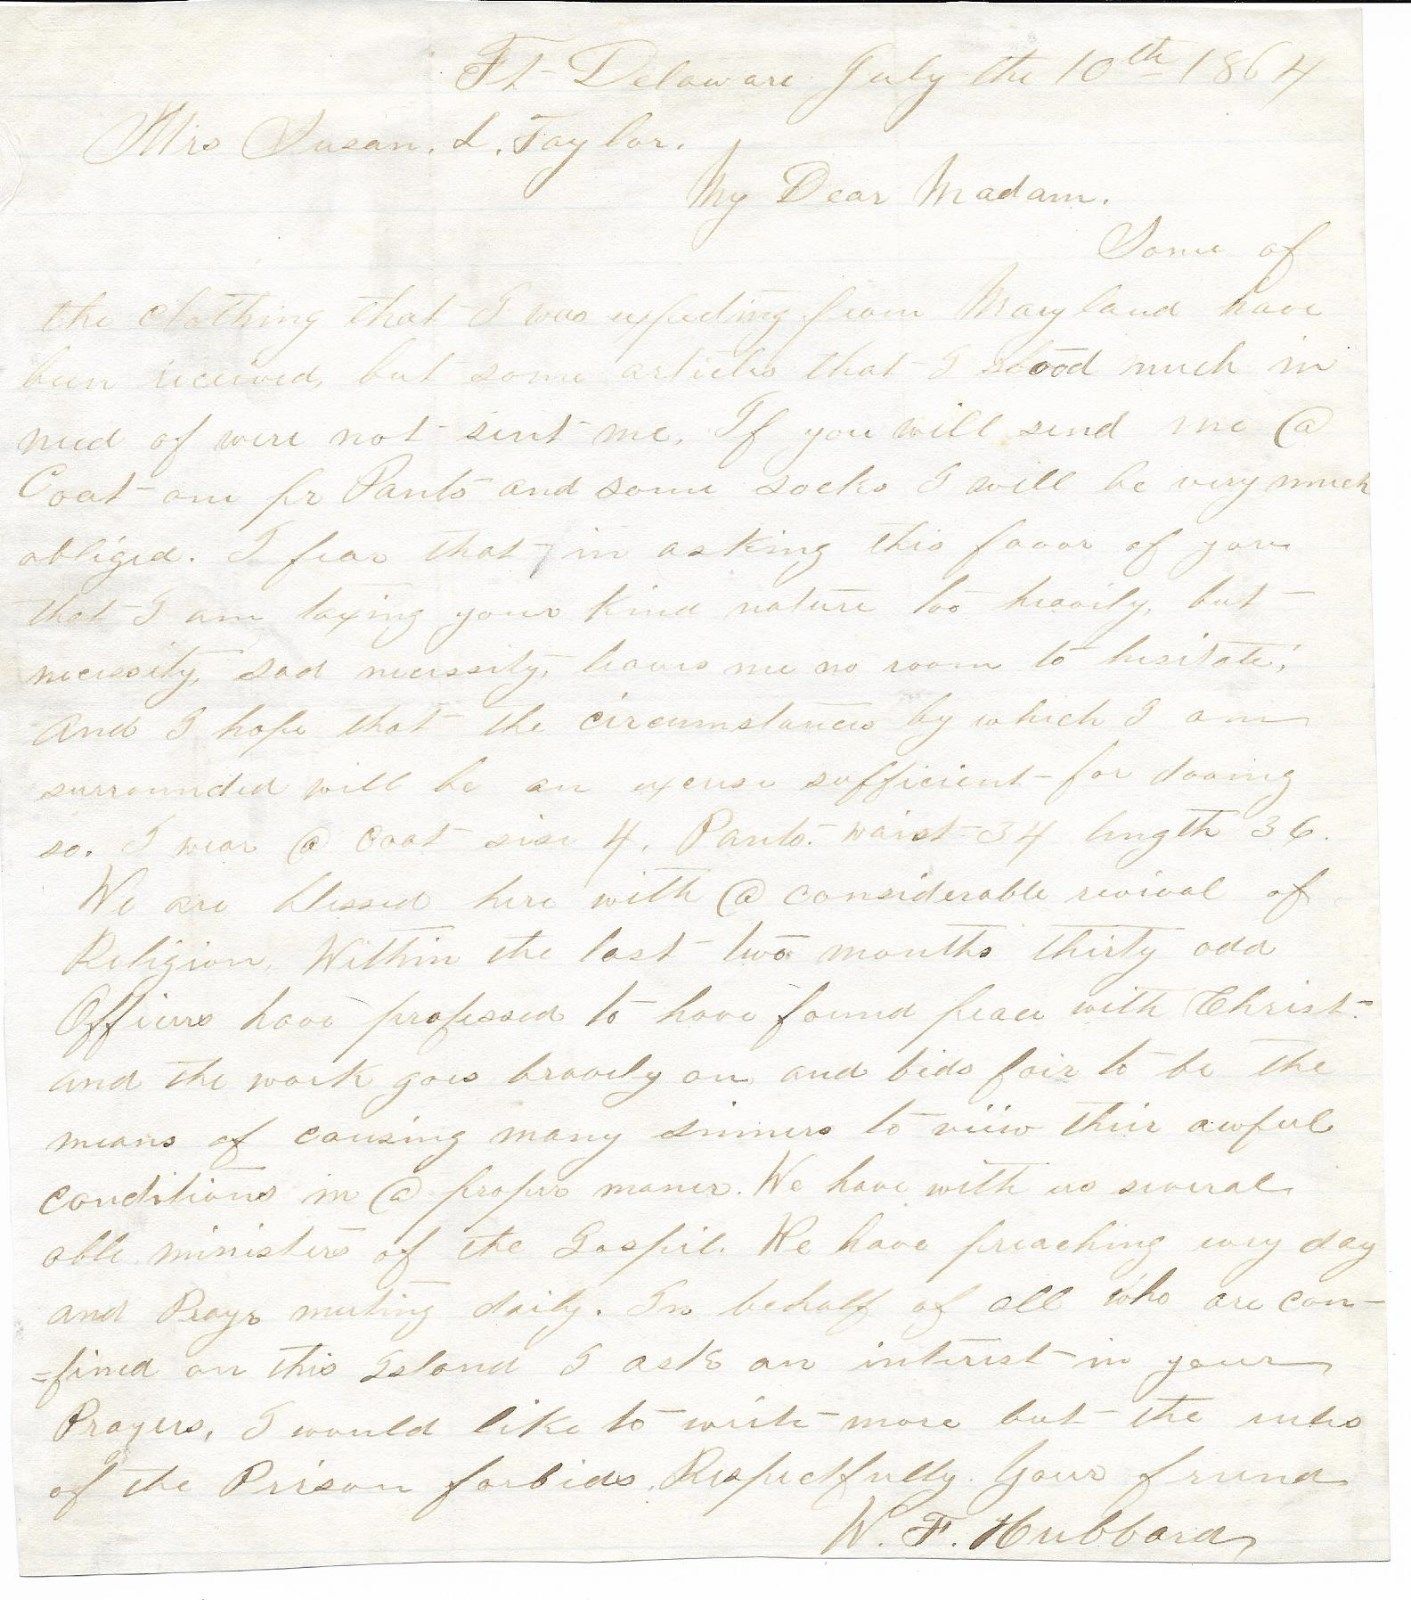 Ft Delaware July the 10th 1864
Mrs Susan. L. Taylor.
My Dear Madam.
Some of
the clothing that I was expecting from Maryland have
been received, but some articles that I stood much in
need of were not sent me. If you will send me @
Coat one pr Pants and some socks I will be very much
obliged. I fear that in asking this favor of you
that I am taxing your kind nature too heavily, but
necessity, sad necessity, leaves me no room to hesitate;
And I hope that the circumstances by which I am
surrounded will be an excuse sufficient for dooing
so. I wear @ coat size 4, Pants. waist 34 length 36.
We are blessed here with @ considerable revival of
Religion, Within the last two months thirty odd
Officers have professed to have found peace with Christ.
and the work goes bravely on and bids fair to be the
means of causing many sinners to view their awful
conditions in @ proper maner. We have with us several
able ministers of the Gospel. We have preaching evry day
and Prayr meeting daily. In behalf of all who are con-
=fined on this Island I ask an interest in your
Prayers, I would like to write more but the rules
of the Prison forbids. Respectfully. Your friend
W. F. Hubbard